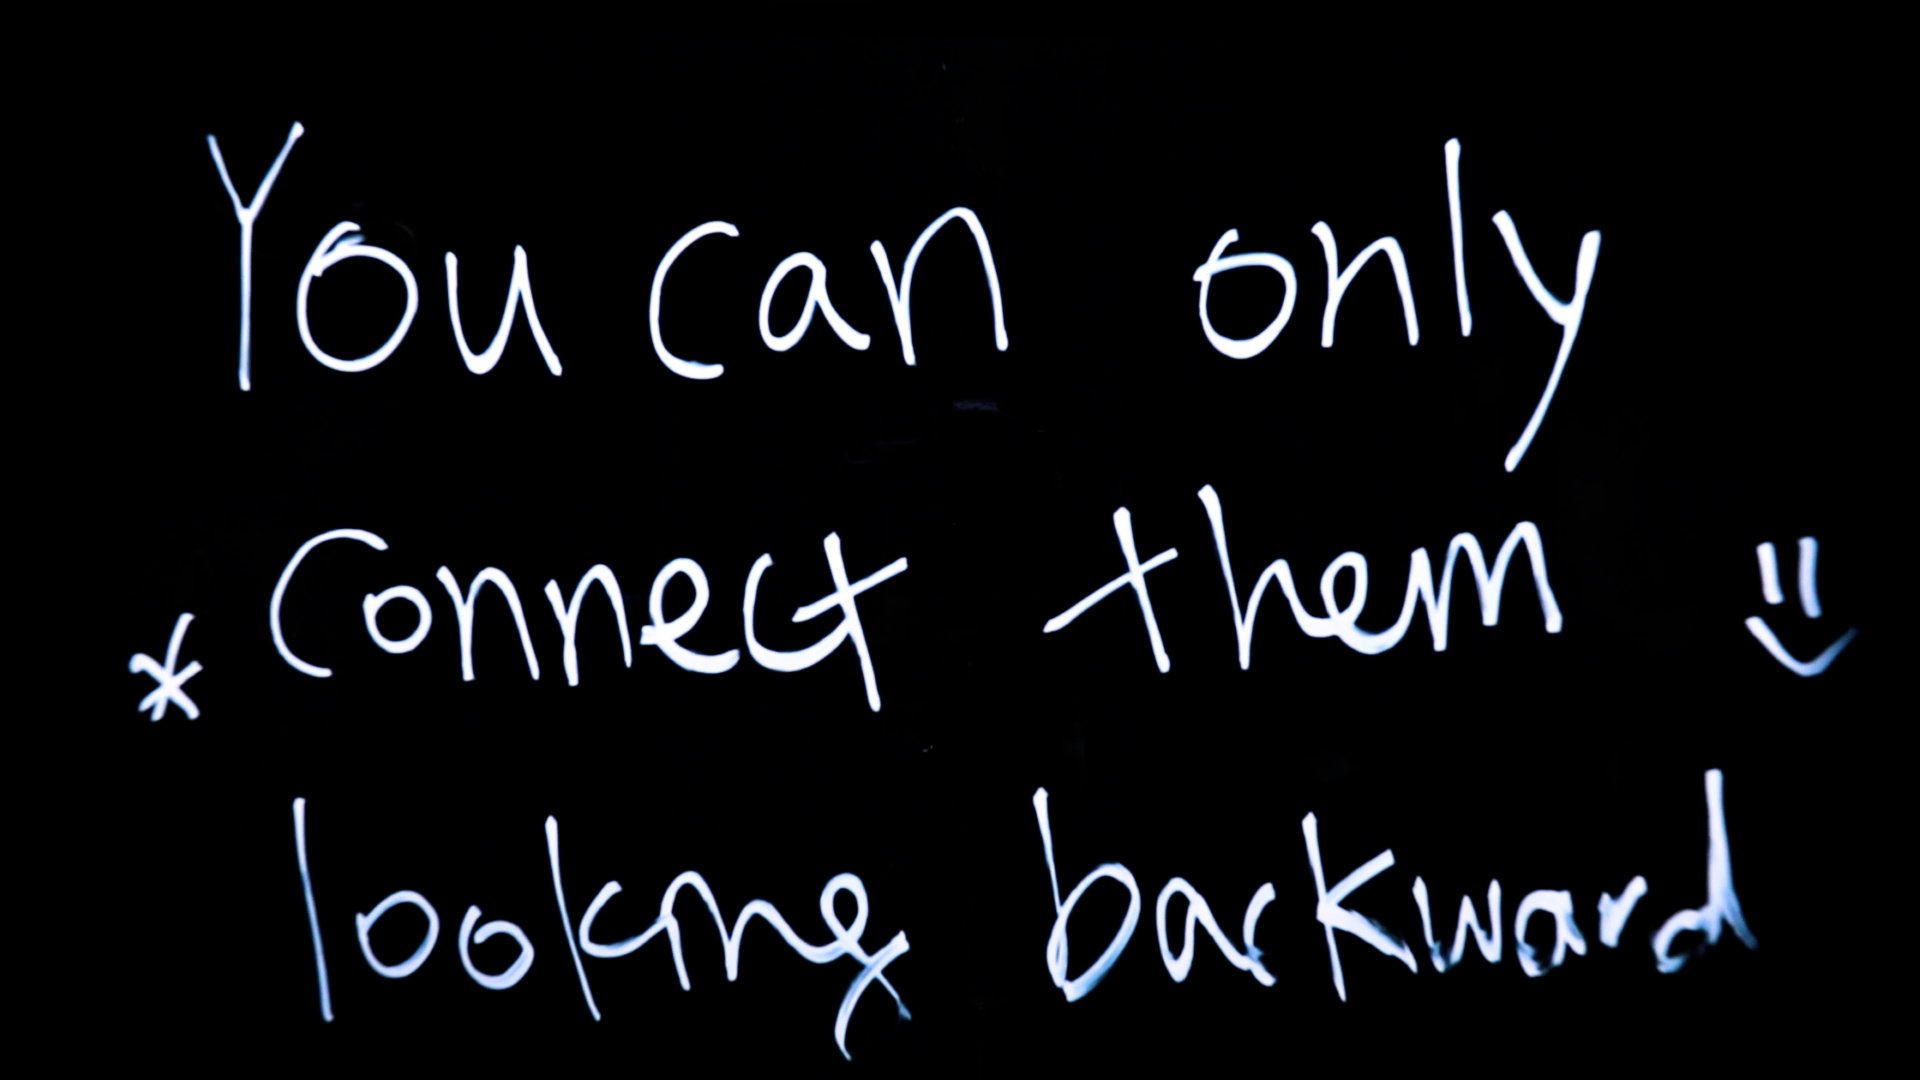 You can only
* Connect them =)
looking backward